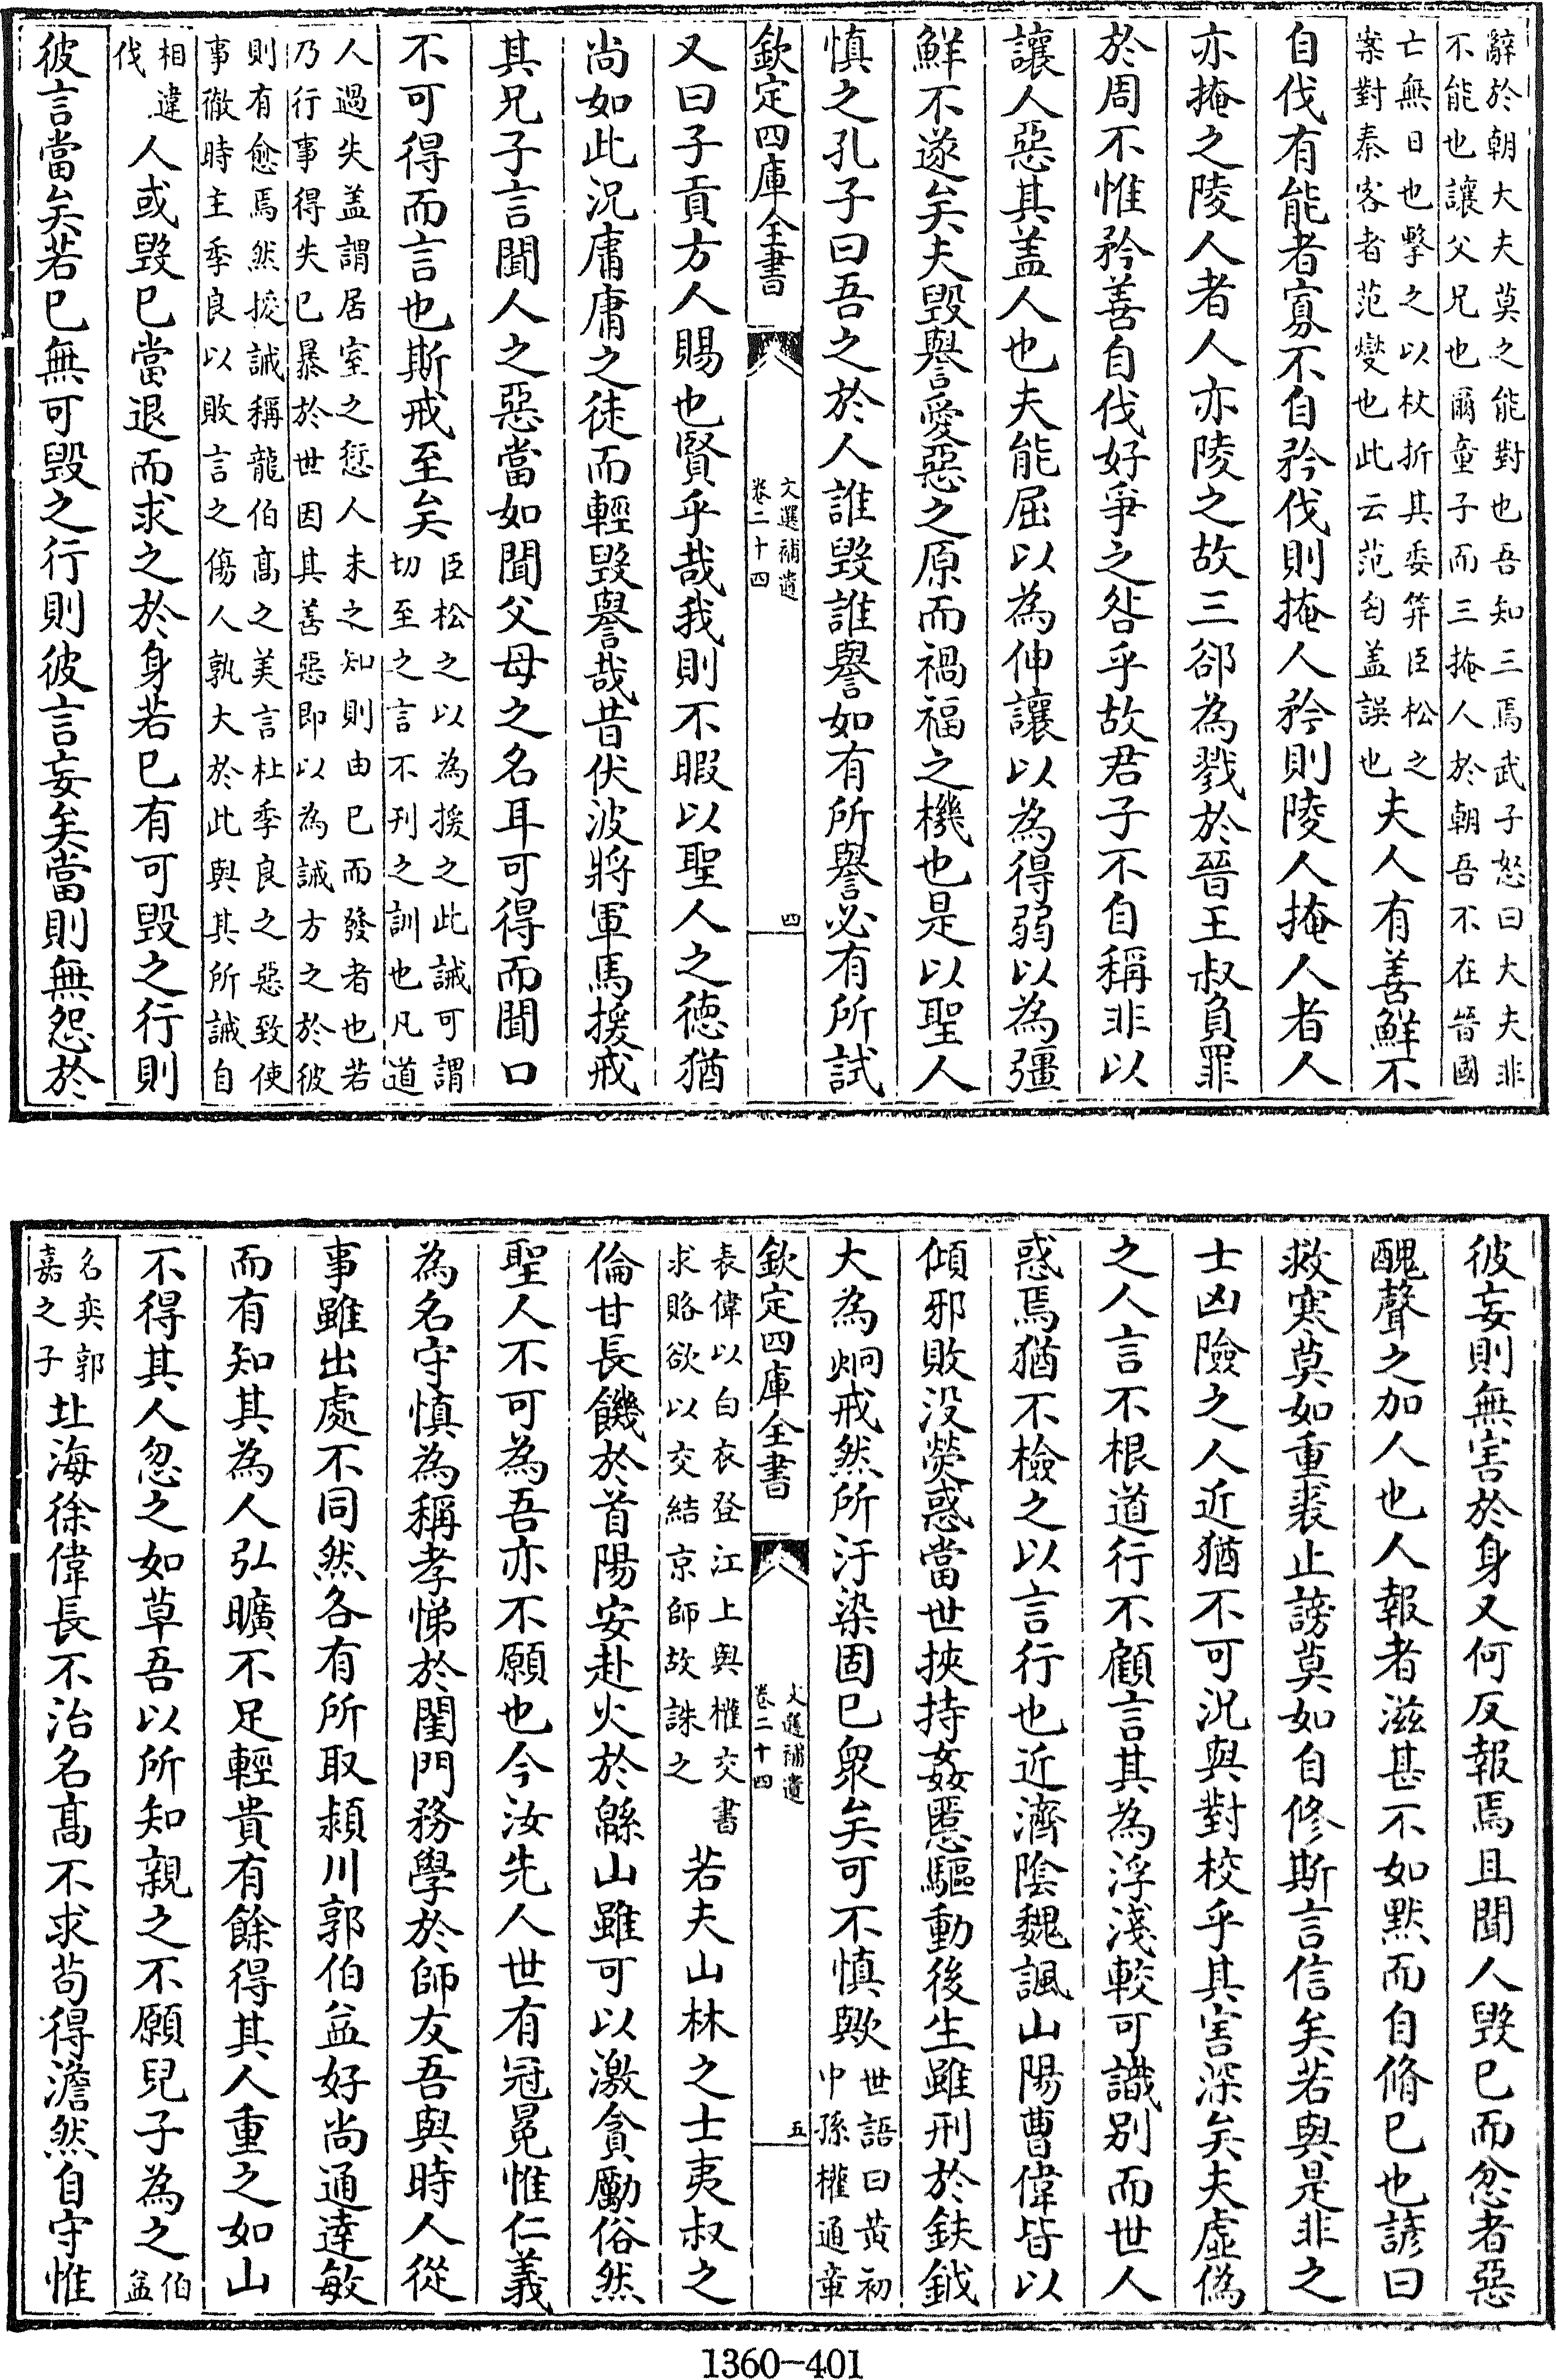 辭於朝大夫莫之能對也吾知三焉武子怒曰大夫非
不能也讓父兄也爾童子而三掩人於朝吾不在晉國
亡無日也擊之以杖折其委笄臣松之
案對秦客者范燮也此云范匄盖誤也夫人有善鮮不
自伐有能者寡不自矜伐則掩人矜則陵人掩人者人
亦掩之陵人者人亦陵之故三郤為戮於晉王叔負罪
於周不惟矜善自伐好爭之咎乎故君子不自稱非以
讓人惡其盖人也夫能屈以為伸讓以為得弱以為彊
鮮不遂矣夫毀譽愛惡之原而禍福之機也是以聖人
慎之孔子曰吾之於人誰毀誰譽如有所譽必有所試
欽定四庫全書 文選補遺 卷二十四 四
又曰子貢方人賜也賢乎哉我則不暇以聖人之徳猶
尚如此況庸庸之徒而輕毀譽哉昔伏波將軍馬援戒
其兄子言聞人之惡當如聞父母之名耳可得而聞口
不可得而言也斯戒至矣臣松之以為援之此誡可謂
切至之言不刊之訓也凡道
人過失盖謂居室之愆人未之知則由已而發者也若
乃行事得失已暴於世因其善惡即以為誡方之於彼
則有愈焉然援誡稱龍伯高之美言杜季良之惡致使
事徹時主季良以敗言之傷人孰大於此與其所誡自
相違
伐人或毀已當退而求之於身若已有可毀之行則
彼言當矣若已無可毀之行則彼言妄矣當則無怨於
彼妄則無害於身又何反報焉且聞人毀已而忿者惡
醜聲之加人也人報者滋甚不如黙而自脩已也諺曰
救寒莫如重裘止謗莫如自修斯言信矣若與是非之
士凶險之人近猶不可況與對校乎其害深矣夫虛偽
之人言不根道行不顧言其為浮淺較可識别而世人
惑焉猶不檢之以言行也近濟隂魏諷山陽曹偉皆以
傾邪敗没熒惑當世挾持姦慝驅動後生雖刑於鈇鉞
大為炯戒然所汙染固已衆矣可不慎歟世語曰黃初
中孫權通章
欽定四庫全書 文選補遺 卷二十四 五
表偉以白衣登江上與權交書
求賂欲以交結京師故誅之若夫山林之士夷叔之
倫甘長饑於首陽安赴火於緜山雖可以激貪勵俗然
聖人不可為吾亦不願也今汝先人世有冠冕惟仁義
為名守慎為稱孝悌於閨門務學於師友吾與時人從
事雖出處不同然各有所取潁川郭伯益好尚通達敏
而有知其為人弘曠不足輕貴有餘得其人重之如山
不得其人忽之如草吾以所知親之不願兒子為之伯
益
名奕郭
嘉之子北海徐偉長不治名高不求苟得澹然自守惟
1360-401